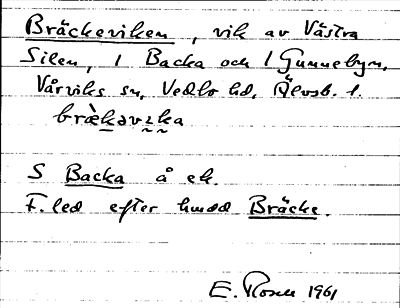 Bräckeviken, vik av Västra
Silen, i Backa och i Gunnebyn,
Vårviks sn, Vedbo hd, Älvsb. l.
S Backa å ek.
F. led efter hmdd Bräcke.
E. Rosell 1961